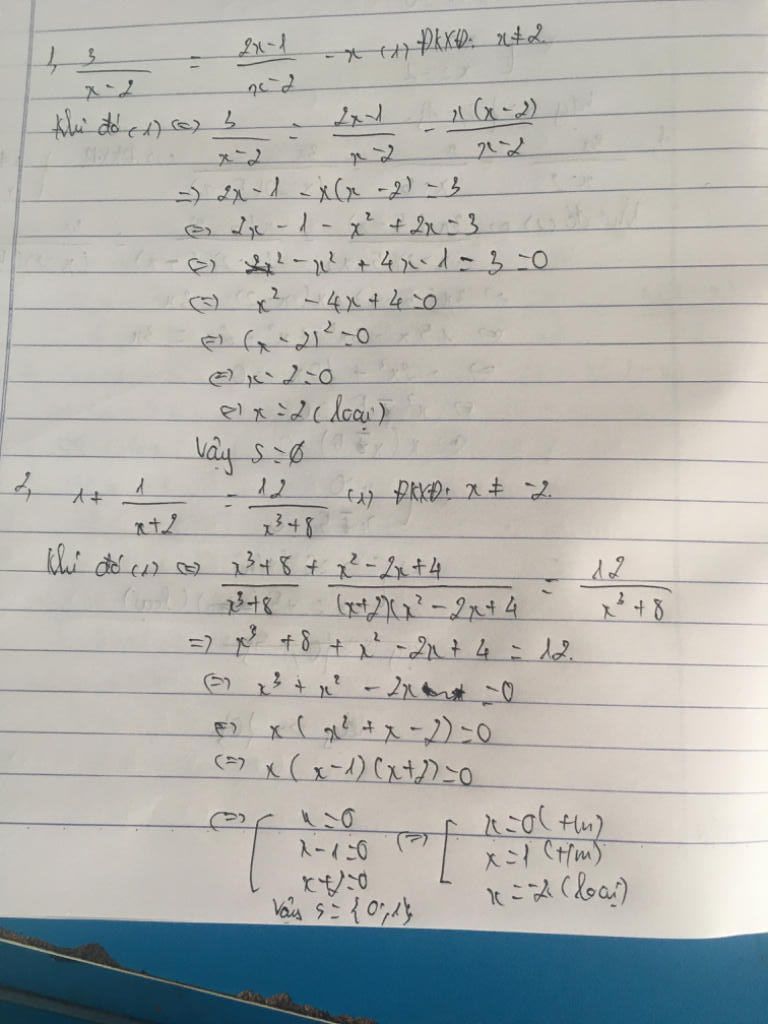 1, 3/(x-2) = (2x-1)/(x-2) - x (1) ĐKXĐ: x ≠ 2
Khi đó (1) <=> 3/(x-2) = (2x-1)/(x-2) - x(x-2)/(x-2)
=> 2x - 1 - x(x-2) = 3
<=> 2x - 1 - x² + 2x = 3
<=> - x² + 4x - 1 = 3 = 0
<=> x² - 4x + 4 = 0
<=> (x-2)² = 0
<=> x - 2 = 0
<=> x = 2 (loại)
Vậy S = ∅
2, 1 + 1/(x+2) = 12/(x³+8) (1) ĐKXĐ: x ≠ -2.
Khi đó (1) <=> (x³+8)/(x³+8) + (x²-2x+4)/((x+2)(x²-2x+4) = 12/(x³+8)
=> x³ + 8 + x² - 2x + 4 = 12.
<=> x³ + x² - 2x = 0
<=> x(x² + x - 2) = 0
<=> x(x-1)(x+2) = 0
<=> [ x = 0 <=> [ x = 0 (t/m)
x - 1 = 0 x = 1 (t/m)
x + 2 = 0 x = -2 (loại)
Vậy S = {0; 1}